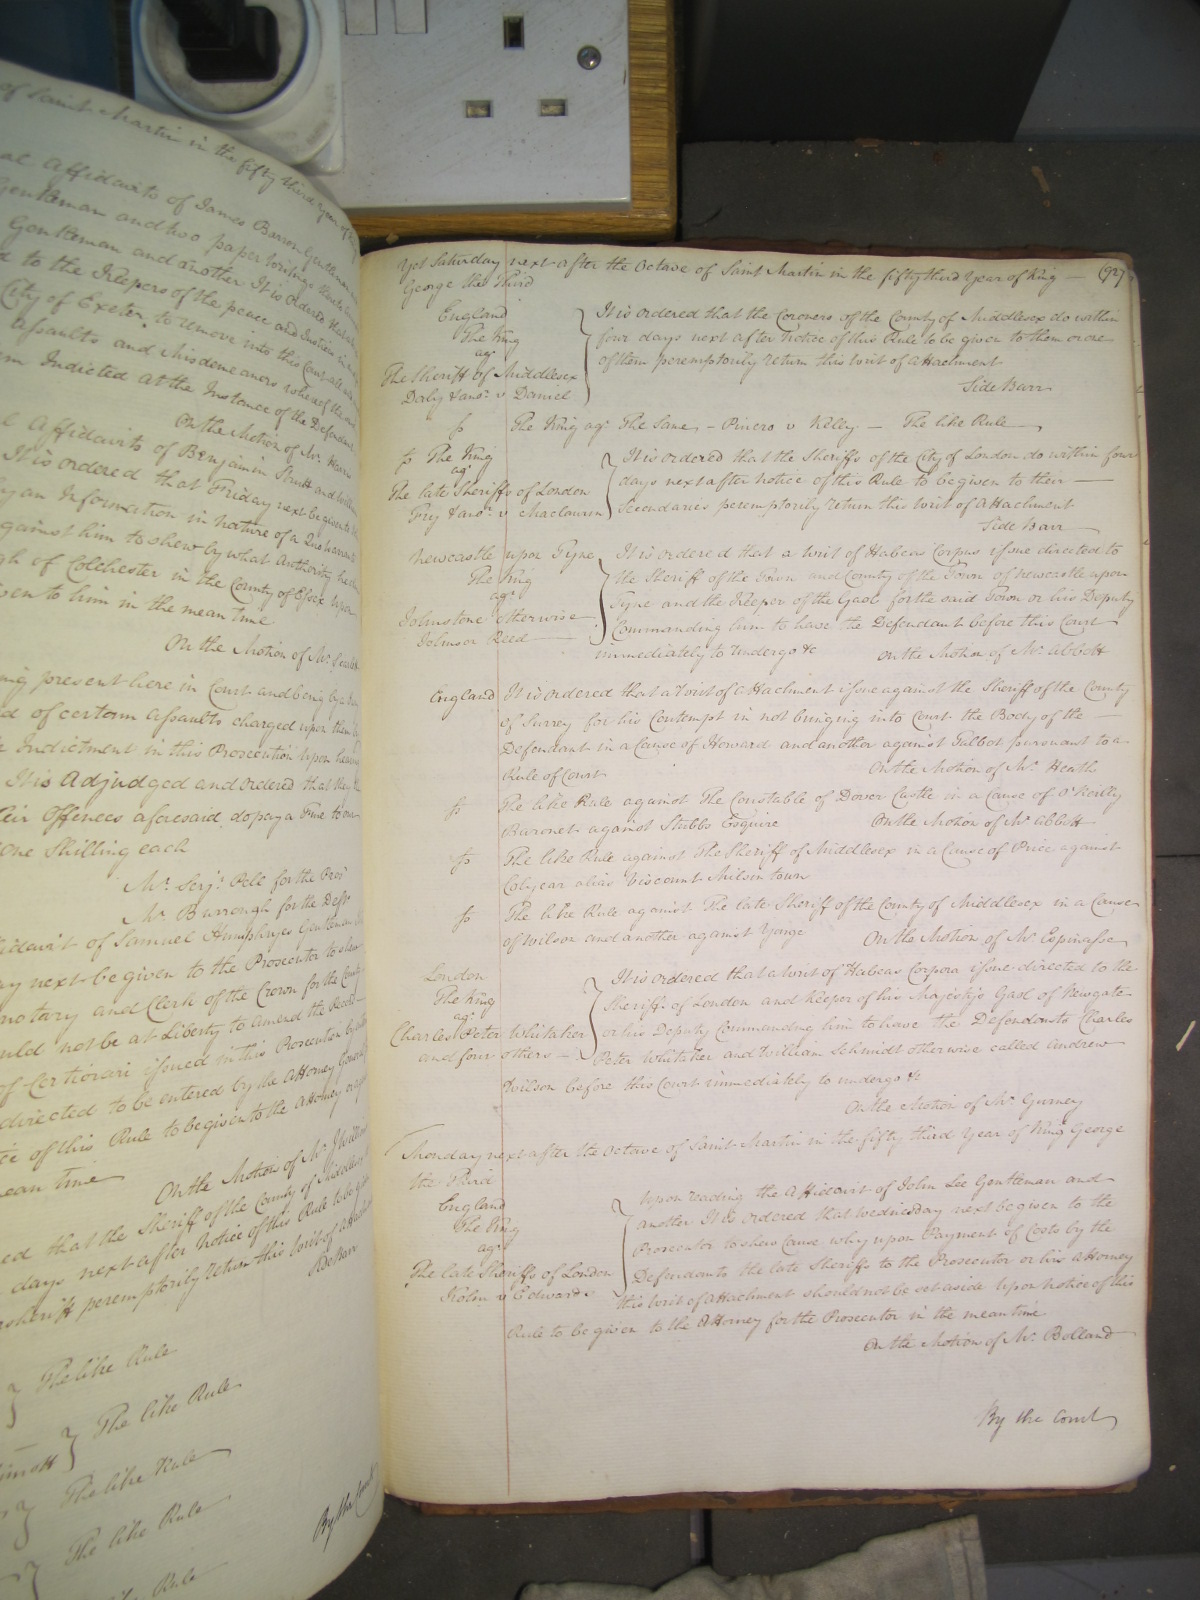 of Saint Martin in the fifty third year of
al Affidavits of James Barron Gentleman
Gentleman and two paper writings
Gentleman and another It is ordered that
d to the Keepers of the peace and Justices
City of Exeter to remove into this Court all
assaults and Misdemeanors whereof the
Indicted at the Instance of the Defendant
On the Motion of Mr.
l Affidavits of Benjamin Strutt and
It is ordered that Friday next be given to
an Information in nature of a Quo Warranto
against him to shew by what authority he
gh of Colchester in the County of Essex upon
en to him in the mean time
On the Motion of Mr.
ing present here in Court and being by
d of certain assaults charged upon them
Indictment in this Prosecution upon
It is Adjudged and ordered that they
eir Offences aforesaid do pay a Fine to our
one Shilling each
Mr. Serjt. Pell for the Pros
Mr. Burrough for the Deft
idavit of Samuel Humphryes Gentleman
ay next be given to the Prosecutor to shew
notary and Clerk of the Crown for the County
uld not be at Liberty to amend the Record
of Certiorari issued in this Prosecution by
directed to be entered by the Attorney General
ce of this Rule to be given to the Attorney
ean time
On the Motion of Mr.
ed that the Sheriff of the County of Middlesex
days next after notice of this Rule to be given
sheriff peremptorily return this Writ of Attachment
The like Rule
The like Rule
The like Rule
The like Rule
like Rule
By the Court
Yet Saturday next after the Octave of Saint Martin in the fifty third Year of King (92)
George the Third
England
The King
agt
The Sheriff of Middlesex
Daly & anor. v Daniel
It is ordered that the Coroners of the County of Middlesex do within
four days next after Notice of this Rule to be given to them or one
of them peremptorily return this Writ of Attachment
Side Barr
ss The King agt The Same - Pinero v Kelly - The like Rule
ss The King
agt
The late Sheriffs of London
Fry & anor. v Maclauren
It is ordered that the Sheriffs of the City of London do within four
days next after notice of this Rule to be given to their
Secondaries peremptorily return this Writ of Attachment
Side Barr
Newcastle upon Tyne
The King
agt
Johnstone otherwise
Johnson Reed
It is ordered that a Writ of Habeas Corpus issue directed to
the Sheriff of the Town and County of the Town of Newcastle upon
Tyne and the Keeper of the Gaol for the said Town or his Deputy
Commanding him to have the Defendant before this Court
immediately to undergo &c
On the Motion of Mr. Abbott
England It is ordered that a Writ of Attachment issue against the Sheriff of the County
of Surrey for his Contempt in not bringing into Court the Body of the
Defendant in a Cause of Howard and another against Talbot pursuant to a
Rule of Court
On the Motion of Mr. Heath
ss The like Rule against The Constable of Dover Castle in a Cause of O'Reilly
Baronet against Stubbs Esquire On the Motion of Mr. Abbott
ss The like Rule against The Sheriff of Middlesex in a Cause of Price against
Colyear alias Viscount Milsintown
ss The like Rule against The late Sheriff of the County of Middlesex in a Cause
of Wilson and another against Yonge On the Motion of Mr. Espinasse
London
The King
agt
Charles Peter Whitaker
and four others
It is ordered that a Writ of Habeas Corpora issue directed to the
Sheriffs of London and Keeper of his Majesty's Gaol of Newgate
or his Deputy Commanding him to have the Defendants Charles
Peter Whitaker and William Schmidt otherwise called Andrew
Wilson before this Court immediately to undergo &c
On the Motion of Mr. Gurney
Monday next after the Octave of Saint Martin in the fifty third Year of King George
the Third
England
The King
agt
The late Sheriffs of London
v Edwards
Upon reading the Affidavit of John Lee Gentleman and
another It is ordered that Wednesday next be given to the
Prosecutor to shew Cause why upon Payment of Costs by the
Defendants the late Sheriffs to the Prosecutor or his Attorney
this Writ of Attachment should not be set aside Upon notice of this
Rule to be given to the Attorney for the Prosecutor in the mean time
On the Motion of Mr. Bolland
By the Court